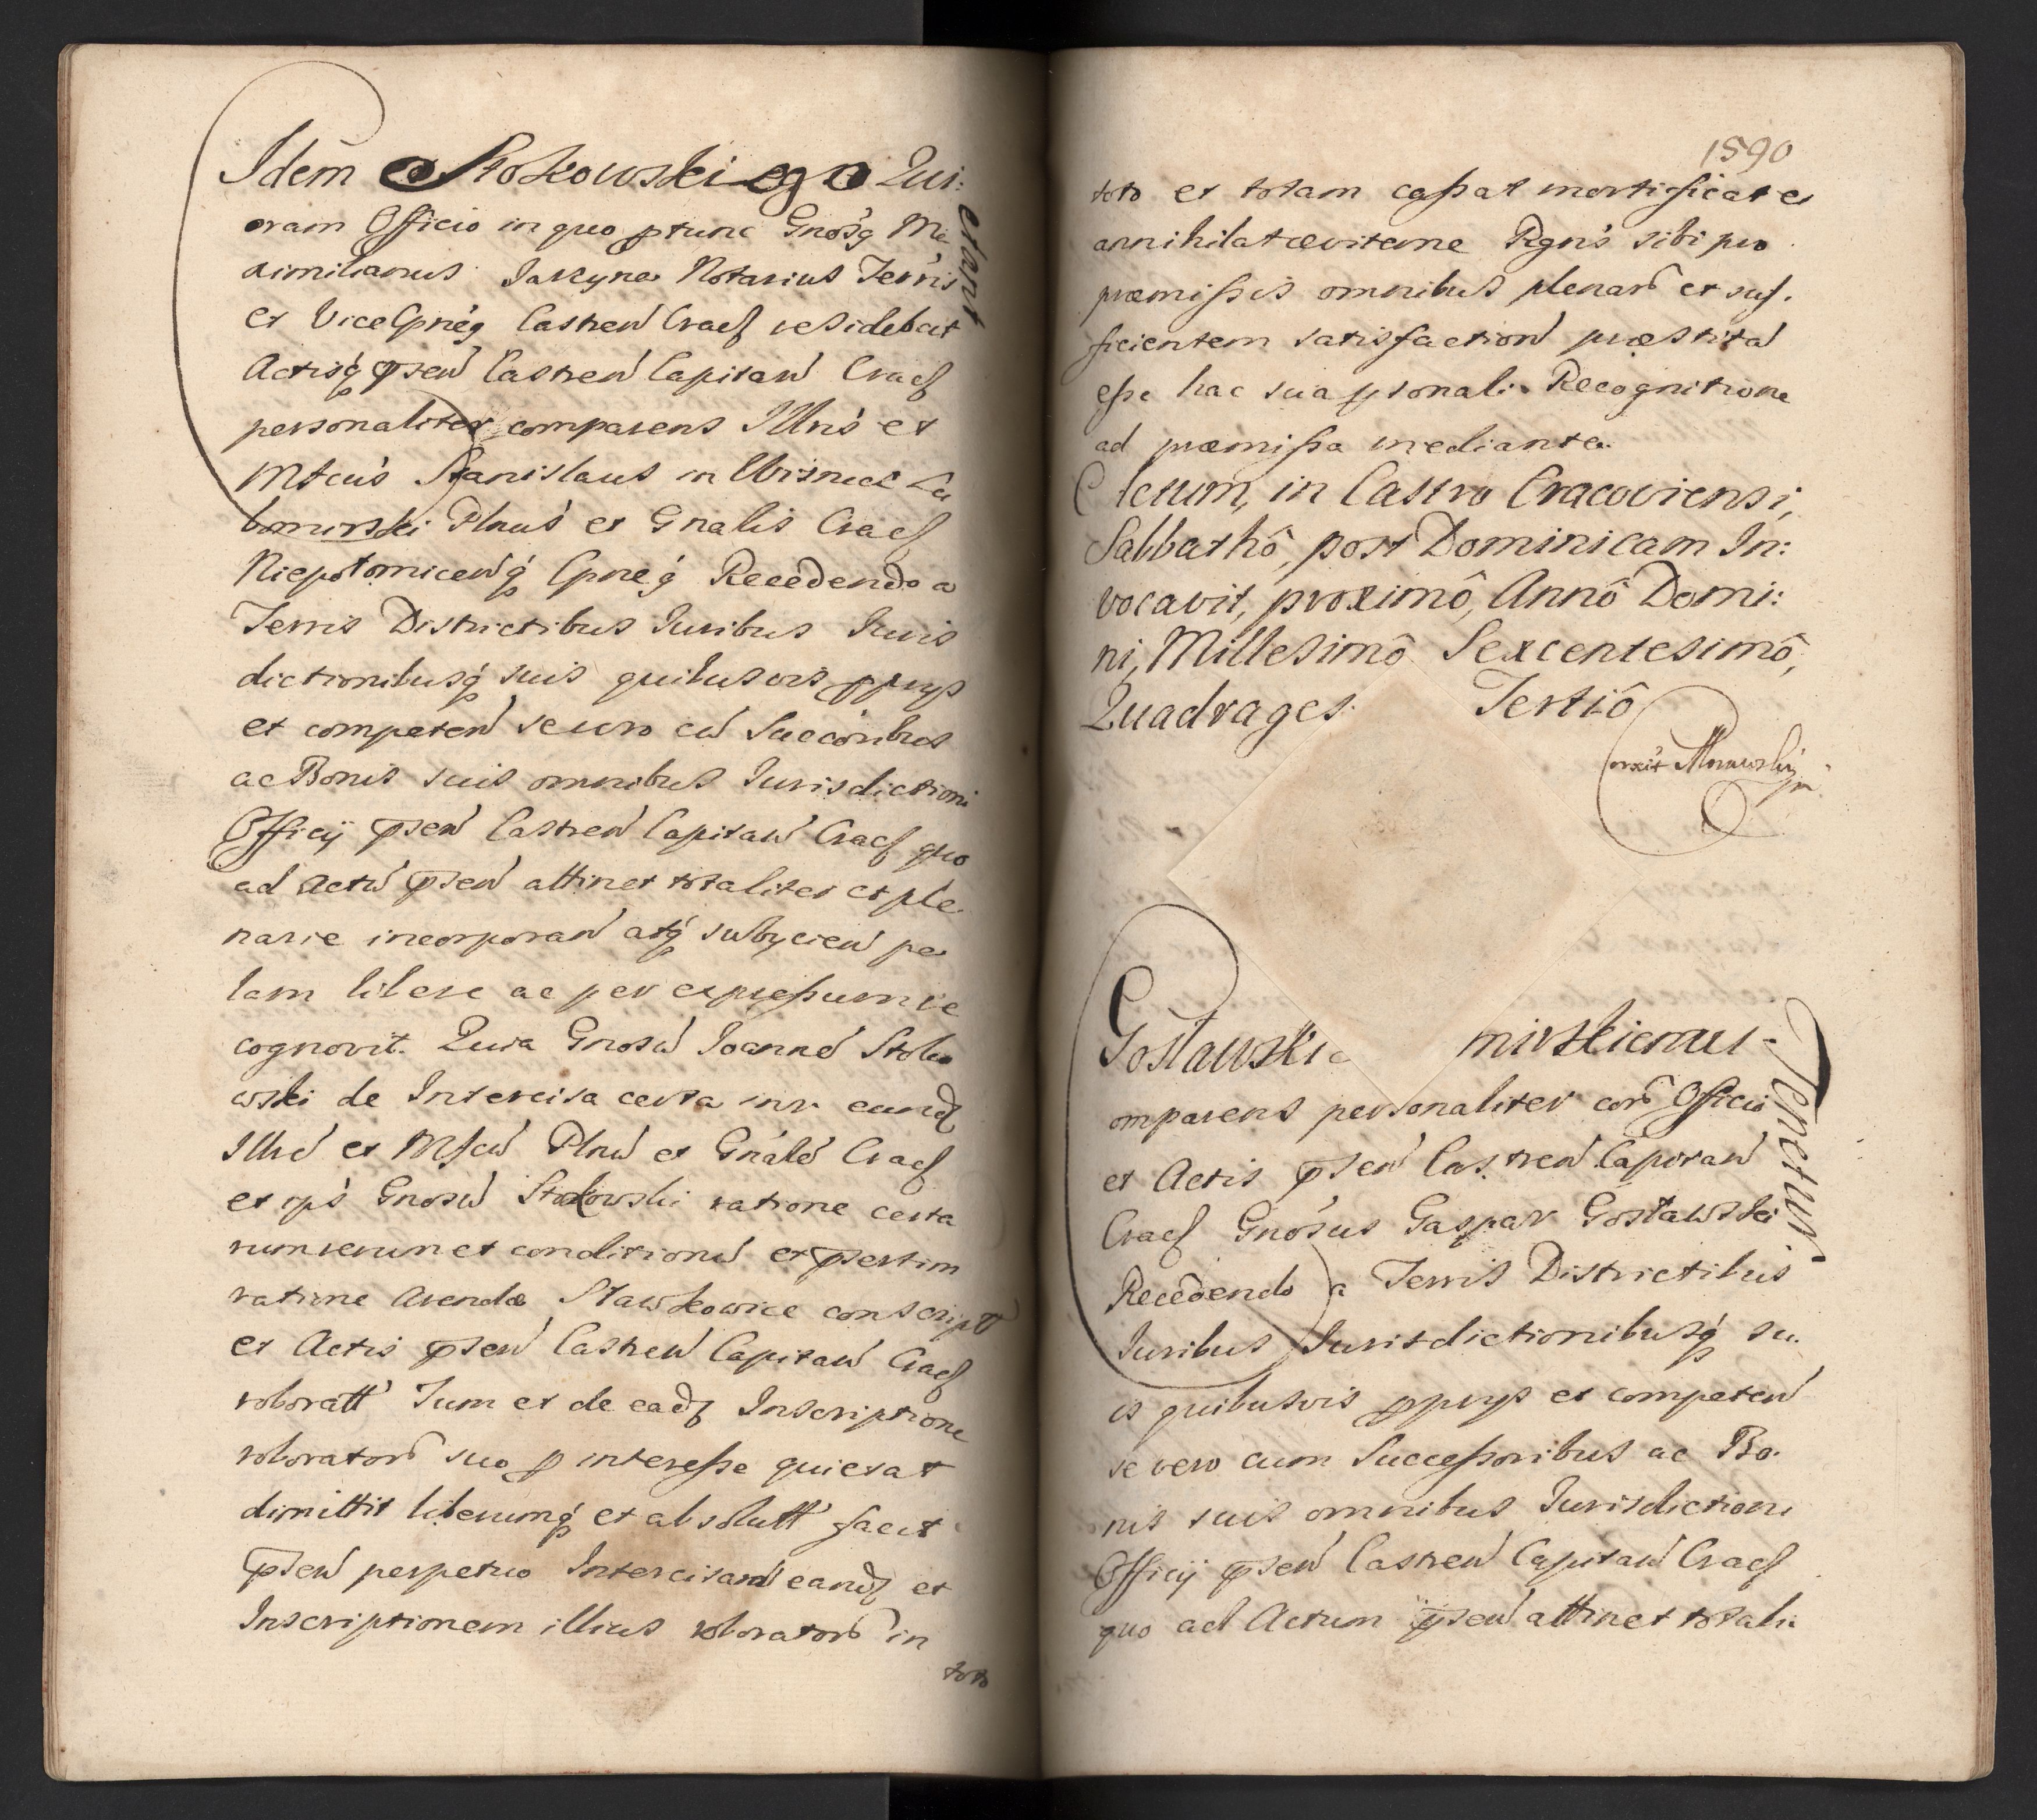 Idem Stokowskiego Qui:
etant
oram Officio in quo ptunc Gnosq Ma
ximilianus Jarzyna Notarius Terris
et Vice Cpneq Castren Cracſ residebat
Actisq pnsen Castren Capitan Cracſ
personaliter comparens Illris et
Mfcus Stanislaus in Wisnicz Lu
bomirski Plnus et Gnalis Cracſ
Niepołomicenq Cpneq Recedendo a
Terris Districtibus Iuribus Iuris
dictionibusq suis quibusvis pprys
et competen se uero cu Succoribus
ac Bonis suis omnibus Iurisdictioni
Officij pnsen Castren Capitan Cracſ quo
ad Actu pnsen attinet totaliter et ple
narie incorporan atq subycien pa
lam libere ac per expreſsum re
cognovit. Quia Gnosu Joanne Stoko
wski de Intercisa certa inr eundꝫ
Illre et Mfcu Plnu et Gnale Cracſ
et ips Gnosu Stokowski ratione certa
rum rerum et conditionu et pnsertim
ratione Arendæ Sławkowice conscript
et Actis pnsen Castren Capitan Cracſ
roboratt Tum et de eadꝫ Inscriptione
roborator suo p intereſse quietat
dimittit liberumq et absolutt facit
pnsen perpetuo Intercisam eandꝫ et
Inscriptionem illius roborator in
toto
1590
toto et totam caſsat mortificat et
annihilat æviterne Rgns sibi pro
præmiſsis omnibus plenar et suf.
ficientem satisfaction præstita
eſse hac sua psonali Recognitione
ad præmiſsa mediante.
Actum, in Castro Cracoviensi,
Sabbathô, post Dominicam In:
vocavit, proximô, Annô Domi:
ni, Millesimô Sexcentesimô,
Quadrages Tertiô
Gosławski mirskiemu-
Tenetur
omparens personaliter cor Officio
et Actis pnsen Castren Capitan
Cracſ Gnosus Gaspar Gosławski
Recedendo a Terris Districtibus
Iuribus Iurisdictionibusq su.
is quibusvis pprys et competen
se vero cum Succeſsoribus ac Bo.
nis suis omnibus Iurisdictioni
Officij pnsen Castren Capitan Cracſ
quo ad Actum pnsen attinet totali: